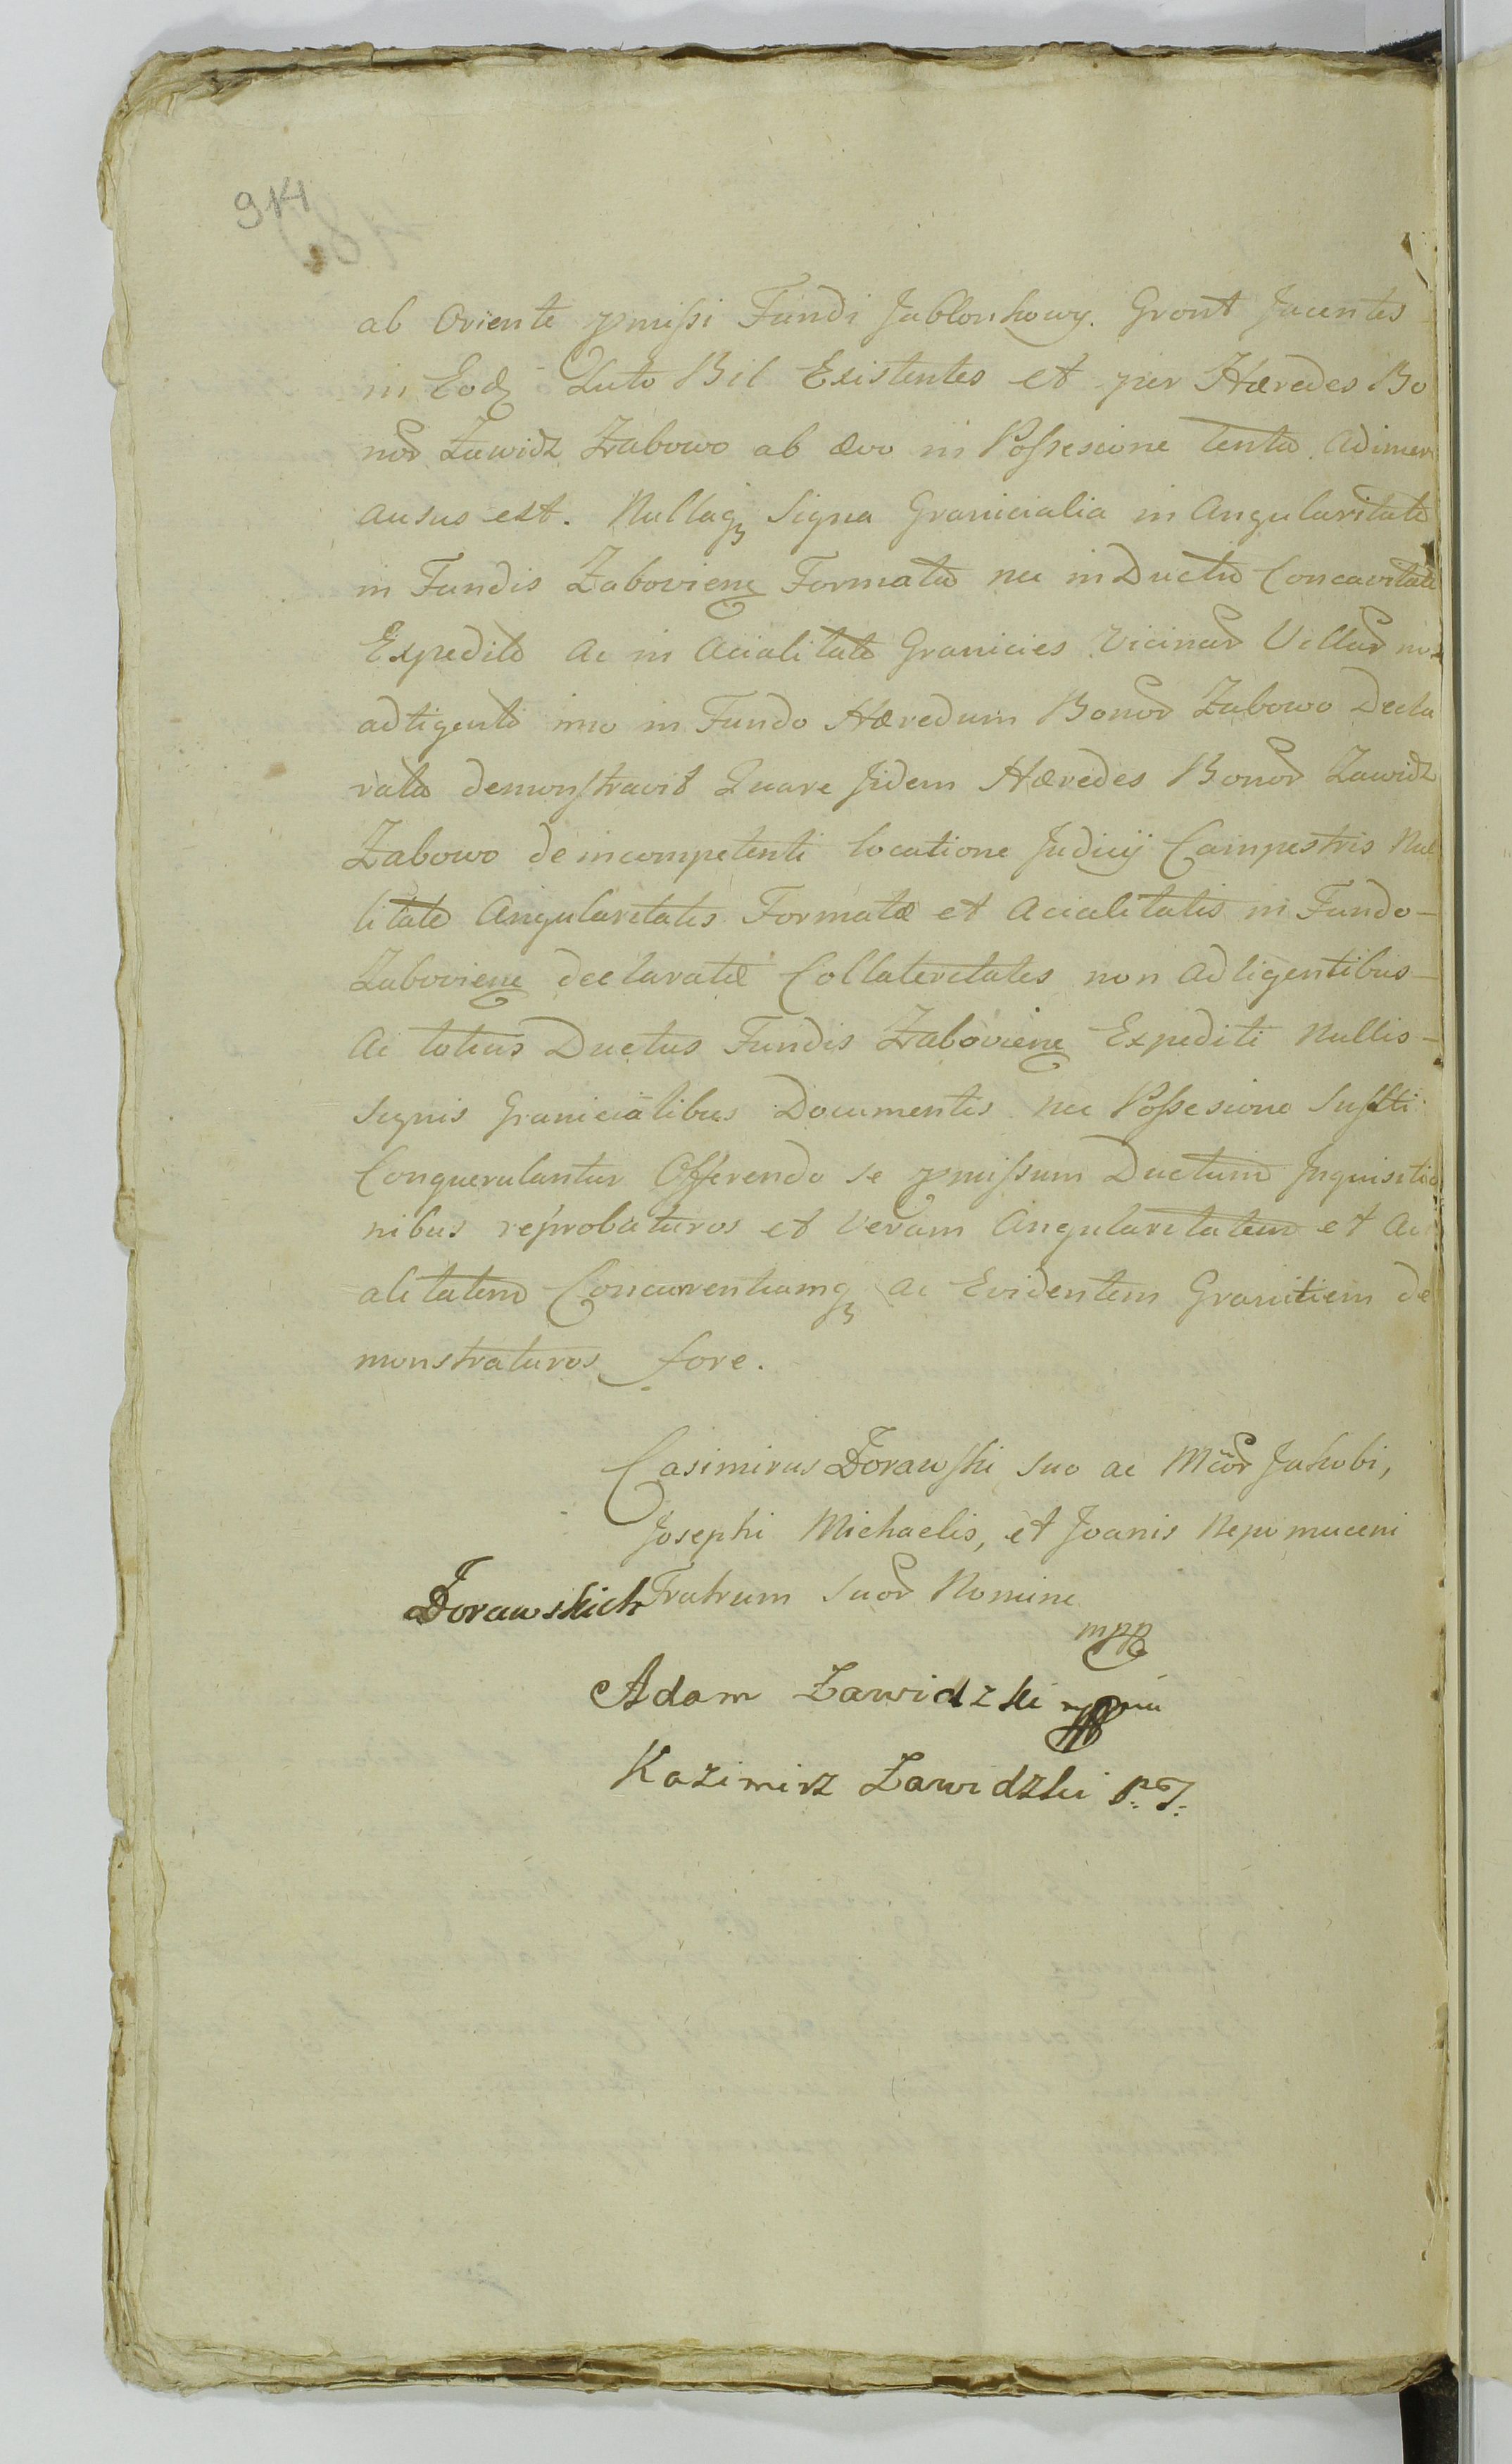 914
ab Oriente pmissi Fundi Jablonkowy. Gront Jacentes
in Eodȝ Luto Bil Existentes et per Hæredes Bo
nor Zawidz Zabowo ab ævo in Possesione tenta Adimer
ausus est. Nullaqȝ Signa Granicialia in Angularitate
in Fundis Zaboviene Formata nec in Ductu Concavitate
Expedito Ac in Acialitate Granicies Vicinar Villar non
adtigenti imo in Fundo Hæredum Bonor Zabowo Decla
rata demonstravit Quare Jidem Hæredes Bonor Zawidz
Zabowo de incompetenti locatione Judicij Campestris Nul
litate Angularitatis Formatæ et Acialitatis in Fundo-
Zaboviene declaratæ Collateretates non Adtigentibus-
Ac totius Ductus Fundis Zaboviene Expediti Nullis-
Signis Granicialibus Documentis nec Possesione Suffti
Conquerulantur Offerendo se pmissum Ductum Inquisitio
nibus reprobaturos et Veram Angularitatem et Aci
alitatem Concurrentiamqȝ ac Evidentem Granitiem de
monstraturos fore.
Casimirus Zorawski suo ac Mcor Jakobi,
Josephi Michaelis, et Joanis Nepomuceni
Zorawskich Fratrum Suor Nomine
mpp
Adam Zawidzki
Kazimirz Zawidzki P. Z.